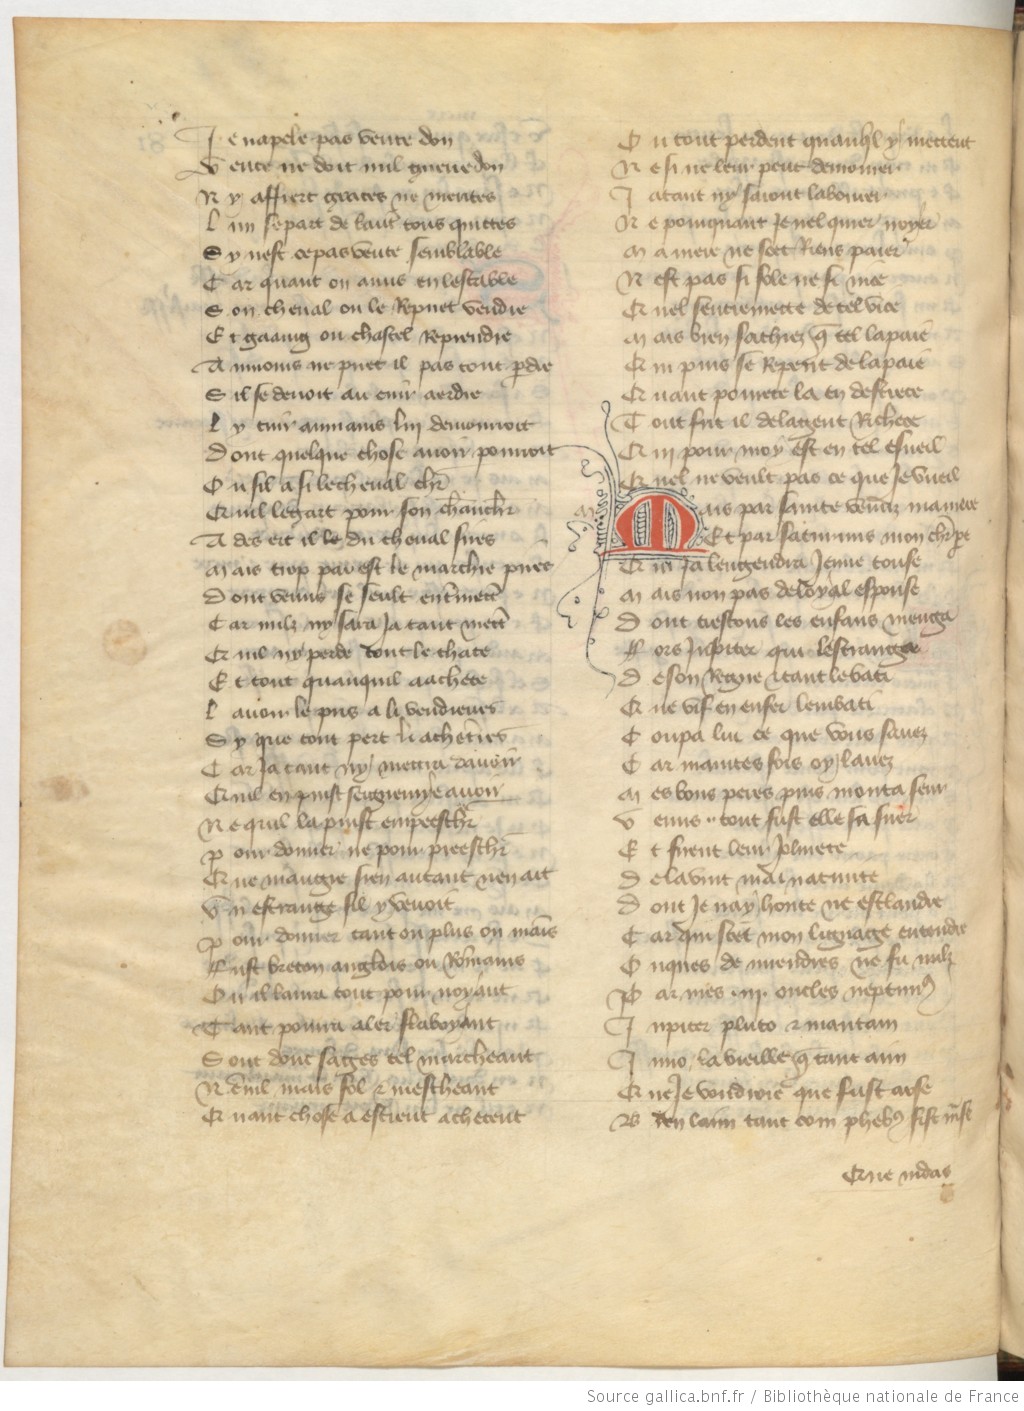 Je napele pas vente don
Vente ne doit nul guerredon
Ny affiert graces ne merites
Lun separt de laut tous quittes
Sy nest ce pas vente semblable
Car quant on amis en lestable
Son cheval ou le Repuet vendre
Et gaaing ou chastel Reprendre
Au moins ne puet il pas tout pdre
Sil se devoit au cuir aerdre
Ly cuir aumains luy demourroit
Dont quelque chose avoir pourroit
Ou sil a si le cheval chr
Quil legart pour son chauchr
Ades ert il le du cheval sires
Mais trop par est le marchie pires
Dont venus se seult entmettr
Car nulz ny sara Ja tant mettr
Quil ny perde tout le chate
Et tout quanquil a achete
Lavoir le pris a li vendierres
Sy que tout pert li achetrres
Car Ja tant ny mettra davoir
Quil en puist seignourie avoir
Ne quil la puist empeeschr
Pour donner ne pour preeschr
Que maugre sien autant nen ait
Un estrange sil y venoit
Pour donner tant ou plus ou mains
Fust breton anglois ou Rommains
Ou il laura tout pour noyant
Tant pourra aler flaboyant
Sont dont sages tel marcheant
Nenil mais fol & mescheant
Quant chose a escient achetent
Ou tout perdent quanql y mettent
Ne si ne leur peut demourer
Ja tant ny saront labourer
Ne pourquant Je nel quier noyer
Ma mere ne scet Riens paier
Nest pas si fole ne si nice
Quel sentremette de tel vice
Mais bien sachiez q tel la paie
Qui puis se Repent de la paie
Quant povrete la en destrece
Tout fut il delagent Richece
Qui pour moy est en tel esueil
Quel ne veult pas ce que Je vueil
Mais par sainte venus ma mere
Et par saturnus mon chr pe
Qui Ja lengendra Jeune touse
Mais non pas de loyal espouse
Dont trestous les enfans menga
Fors Jupiter qui lestranga
De son Regne & tant le bati
Que vif en enfer lembati
Coupa lui ce que vous savez
Car maintes fois oy lavez
Mes bons peres puis monta seur
Venus tout fust elle sa suer
Et firent leur Jolivete
De la vint mai nativite
Dont Je nay honte ne esclandre
Car qui scet mon lignage entendre
Onques de meindres ne fu nulz
Par mes .iii. oncles neptunus
Jupiter pluto & mantain
Juno la vieille q tant aim
Que Je vordroie que fust arse
Bien laim tant com phebus fist mse
Que mdas
Source gallica.bnf.fr / Bibliothèque nationale de France